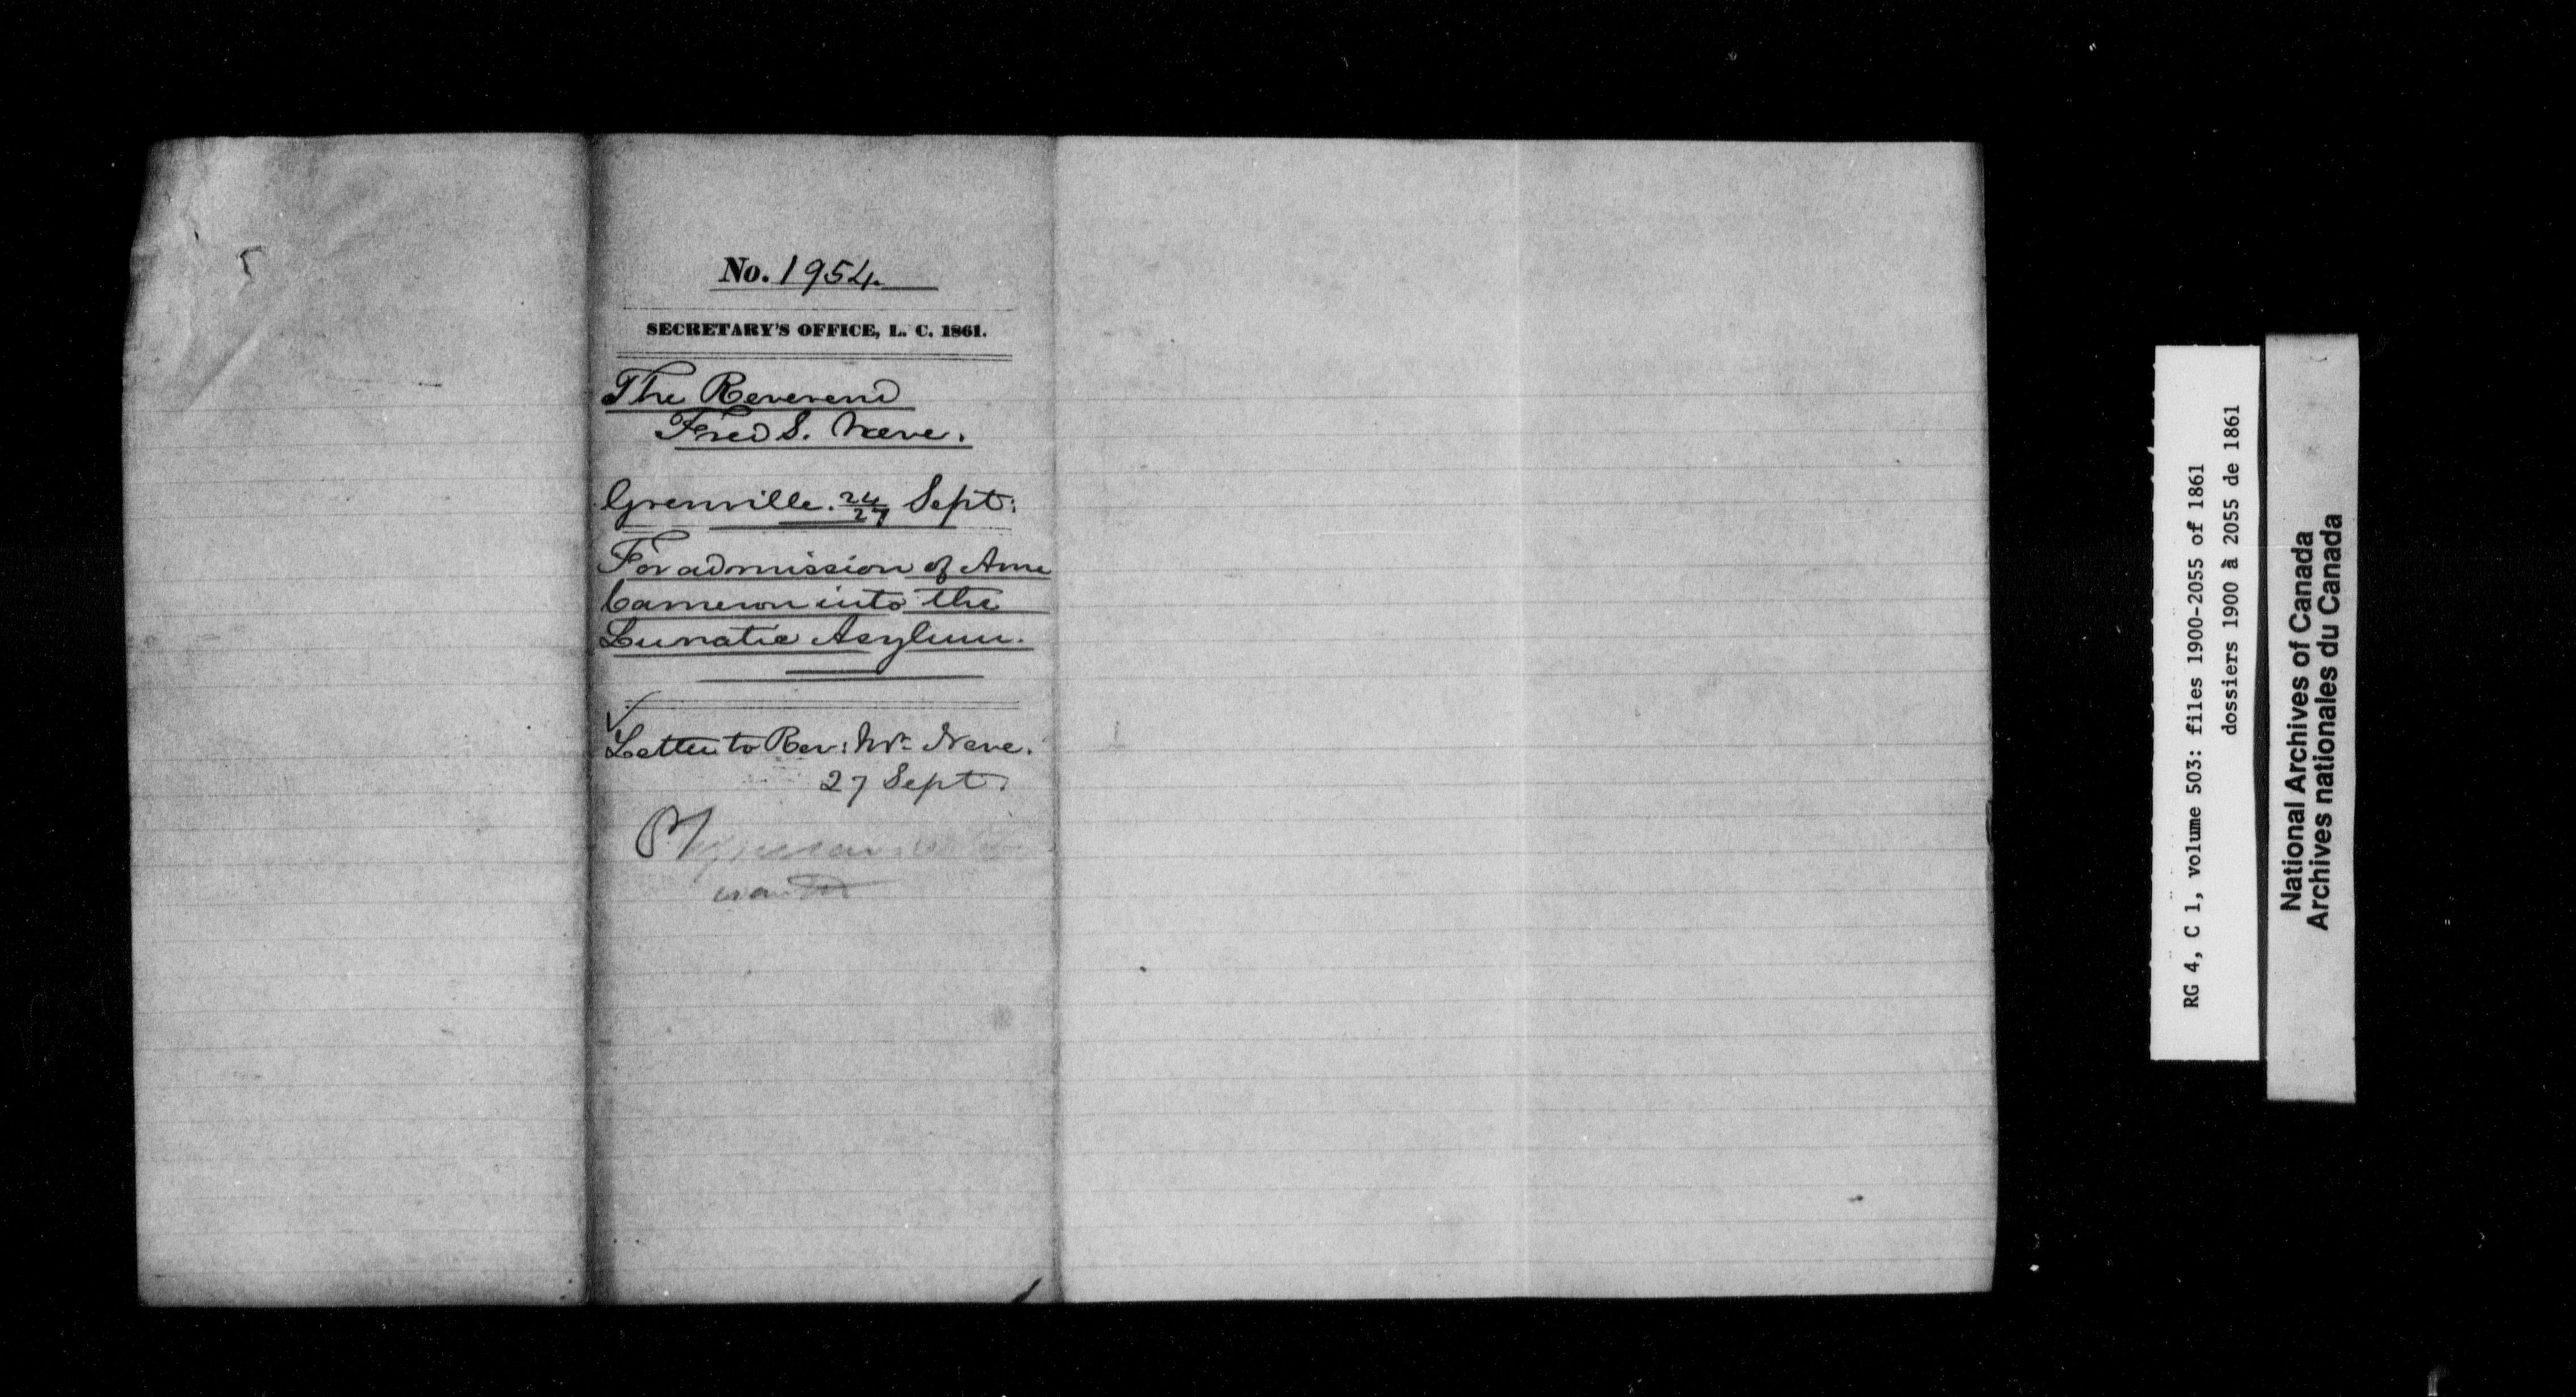 No. 1954.
SECRETARY'S OFFICE, L. C. 1861.
The Reverend
Fred S. Neve.
Grenville. 24/27 Sept:
For admission of Ann
Cameron into the
Lunatic Asylum.
Letter to Rev: Mr. Neve.
27 Sept.
RG 4, C 1, volume 503: files 1900-2055 of 1861
dossiers 1900 à 2055 de 1861
National Archives of Canada
Archives nationales du Canada